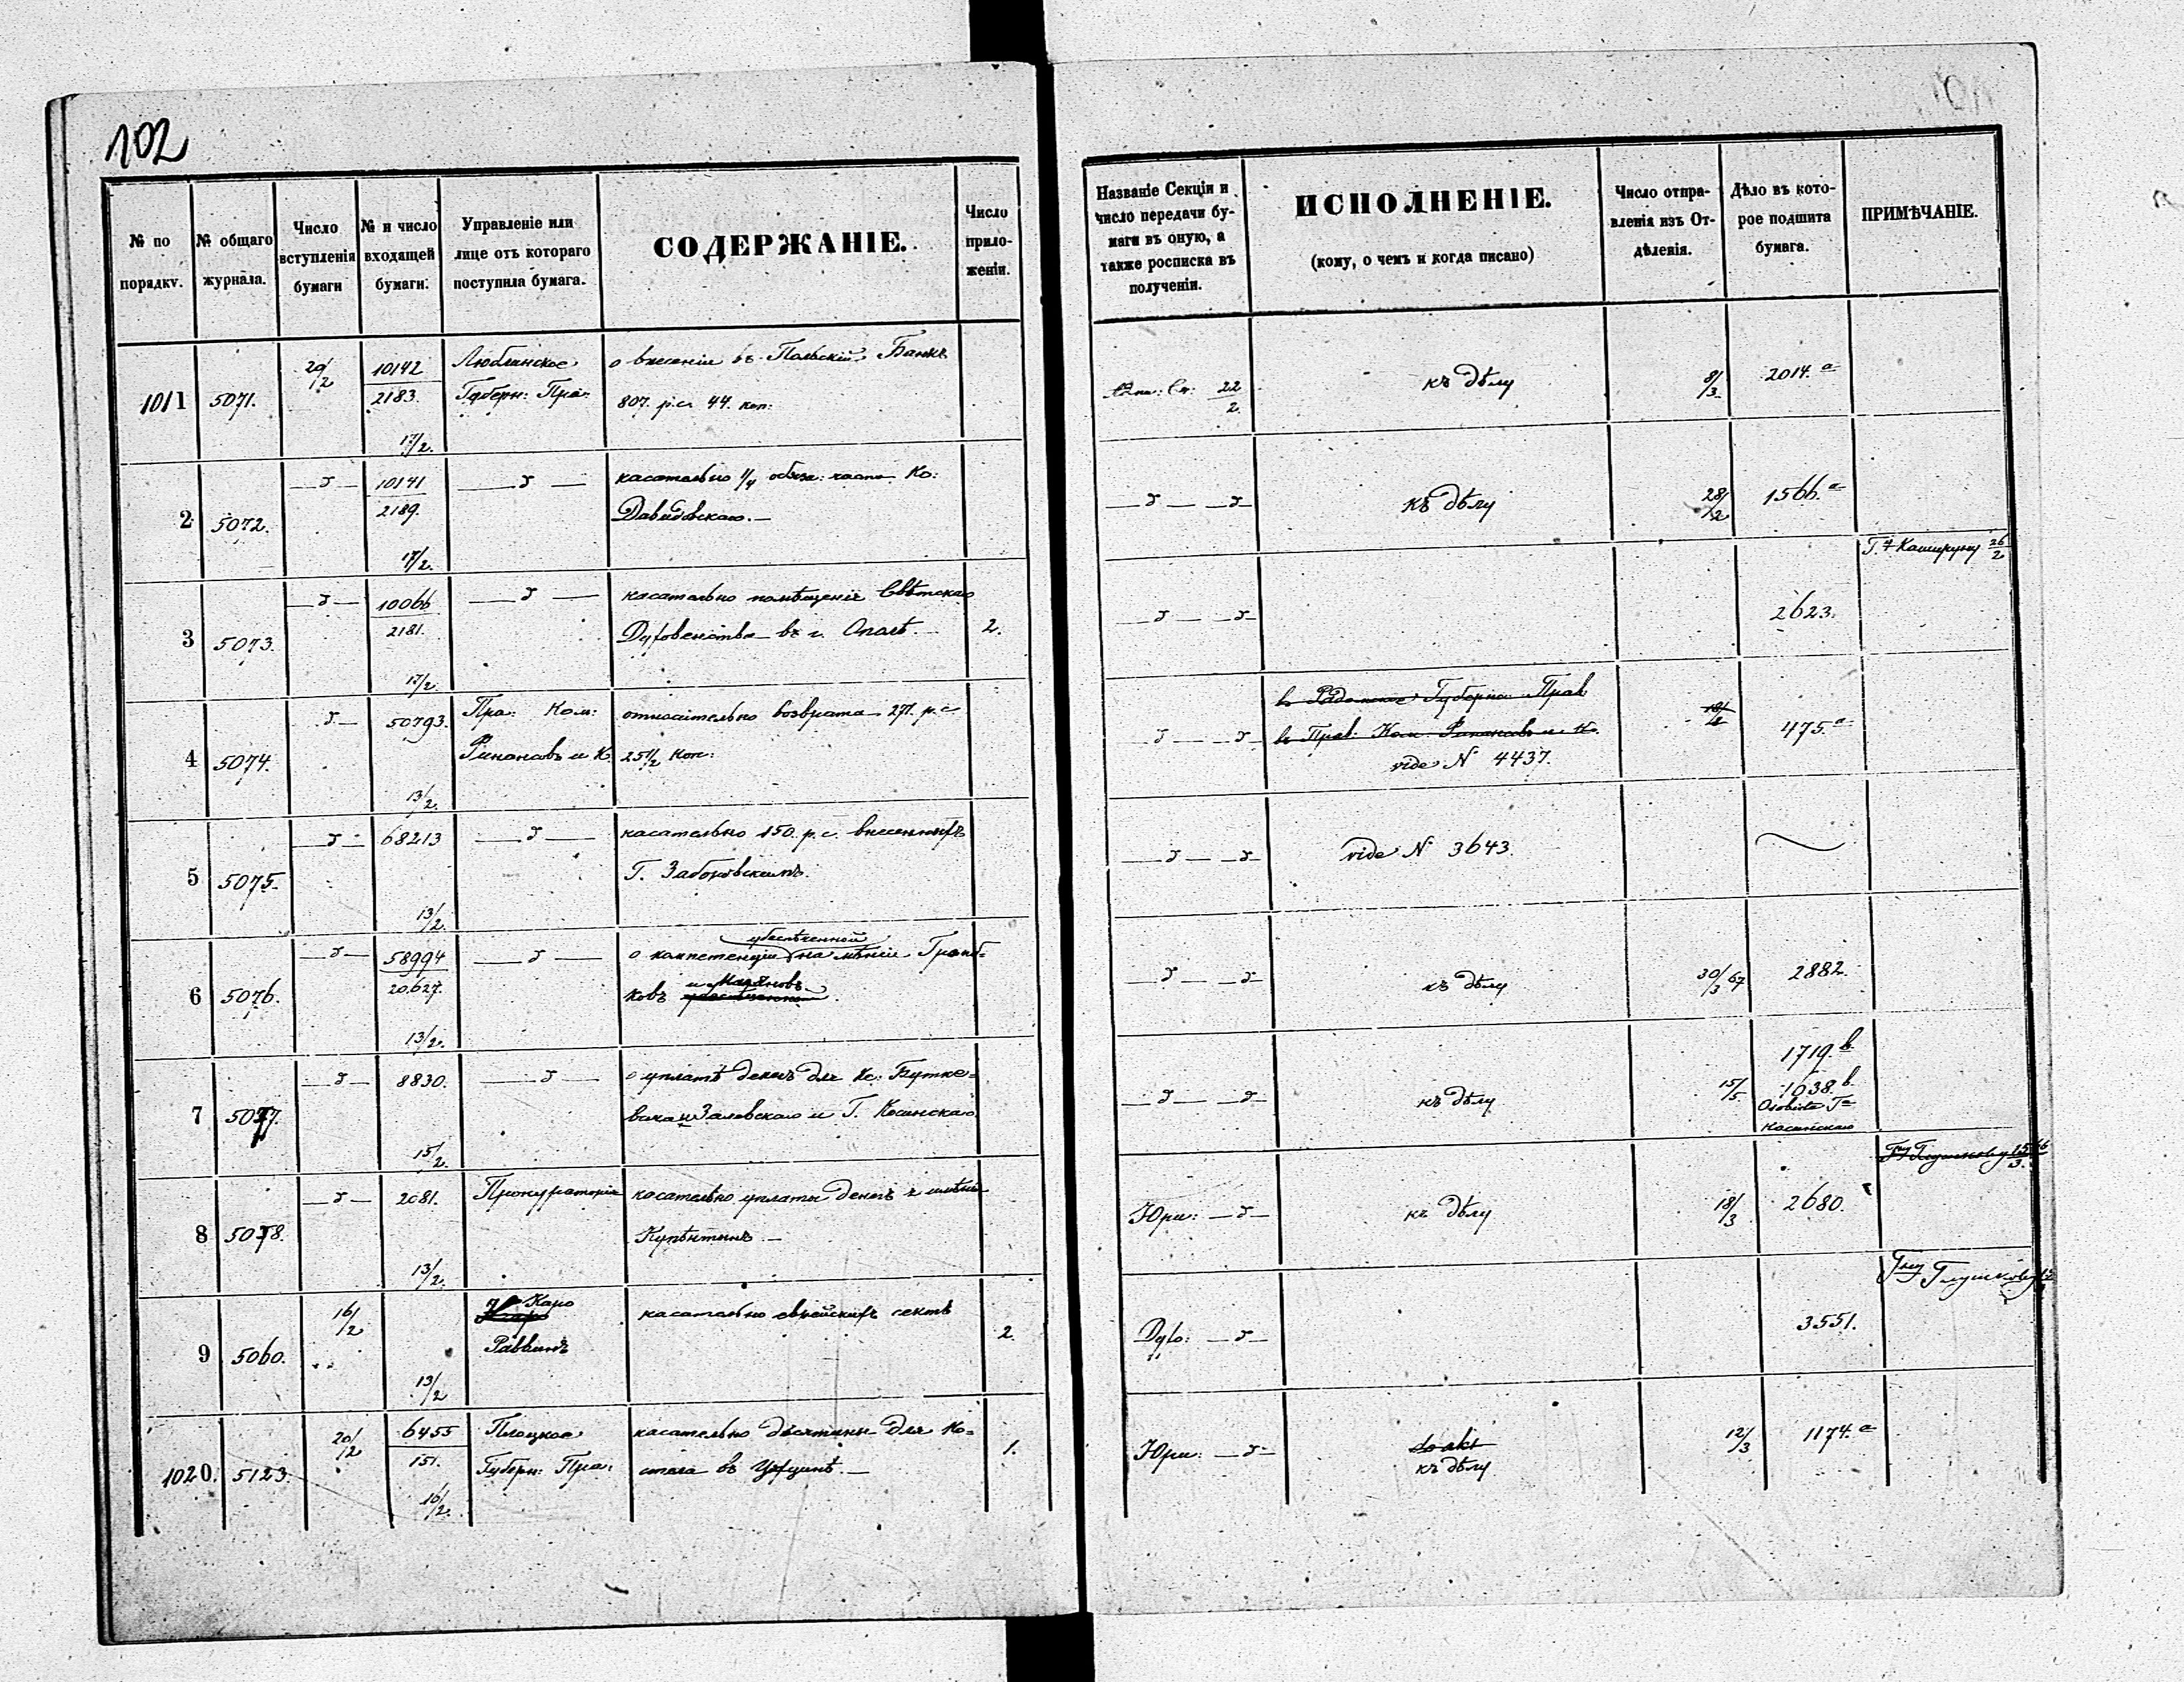 102
№ по порядку.
№ общаго журнала.
Число вступленія бумаги
№ и число входящей бумаги.
Управленіе или лице отъ котораго поступила бумага.
СОДЕРЖАНІЕ.
Число приложеніи.
Названіе Секціи и число передачи бумаги въ оную, а также росписка въ полученіи.
ИСПОЛНЕНІЕ.
(кому, о чемъ и когда писано)
Число отправленія изъ Отдѣленія.
Дѣло въ которое подшита бумага.
ПРИМѢЧАНІЕ.
1011 5071. 20/2 10142 Люблинское о внесеніи въ Польскій Банкъ
2183. Губерн: Пра: 807. р.с. 44. коп:
17/2.
22/2. къ дѣлу 8/3 2014. а
2 5072. 10141 касательно 1/4 части Кс:
2189. Давидовскаго.
17/2.
къ дѣлу 28/2 1566. а
3 5073. 10066 касательно помѣщенія Свѣтскаго
2181. Духовенства въ г. Ополѣ. 2.
17/2
2623. Каширину 26/2
4 5074. 50793. Пра: Ком: относительно возврата 271. р.с.
Финансовъ и К. 25 1/2 коп:
13/2.
в Радомское Губерн: Прав
в Прав: Ком: Финансовъ и К.
vide N 4437. 475. а
5 5075. 68213 касательно 150. р.с. внесенныхъ
Г. Забоковскимъ.
13/2.
vide N 3643.
6 5076. 58994 о компетенціи на имѣніи
20,627.
13/2.
къ дѣлу 30/3 67 2882.
7 5077. 8830. о уплатѣ денегъ для Кс: Бутке-
вича и Залевскаго и Г. Косинскаго
15/2.
къ дѣлу 15/5 1719. в.
1038. в.
Косинскаго
8 5078. 2081. Прокураторія касательно уплаты денегъ с имѣнія
13/2.
Юри: къ дѣлу 18/3 2680.
9 5060. 16/2 Каро касательно еврейскихъ сектъ
Раввинъ 2.
13/2
Дух: 3551. Глушкову
1020. 5123. 20/2 6455 Плоцкое касательно десятины для Ко-
151. Губерн: Пра: стела въ 1.
16/2.
Юри: do akt
къ дѣлу 12/3 1174. а